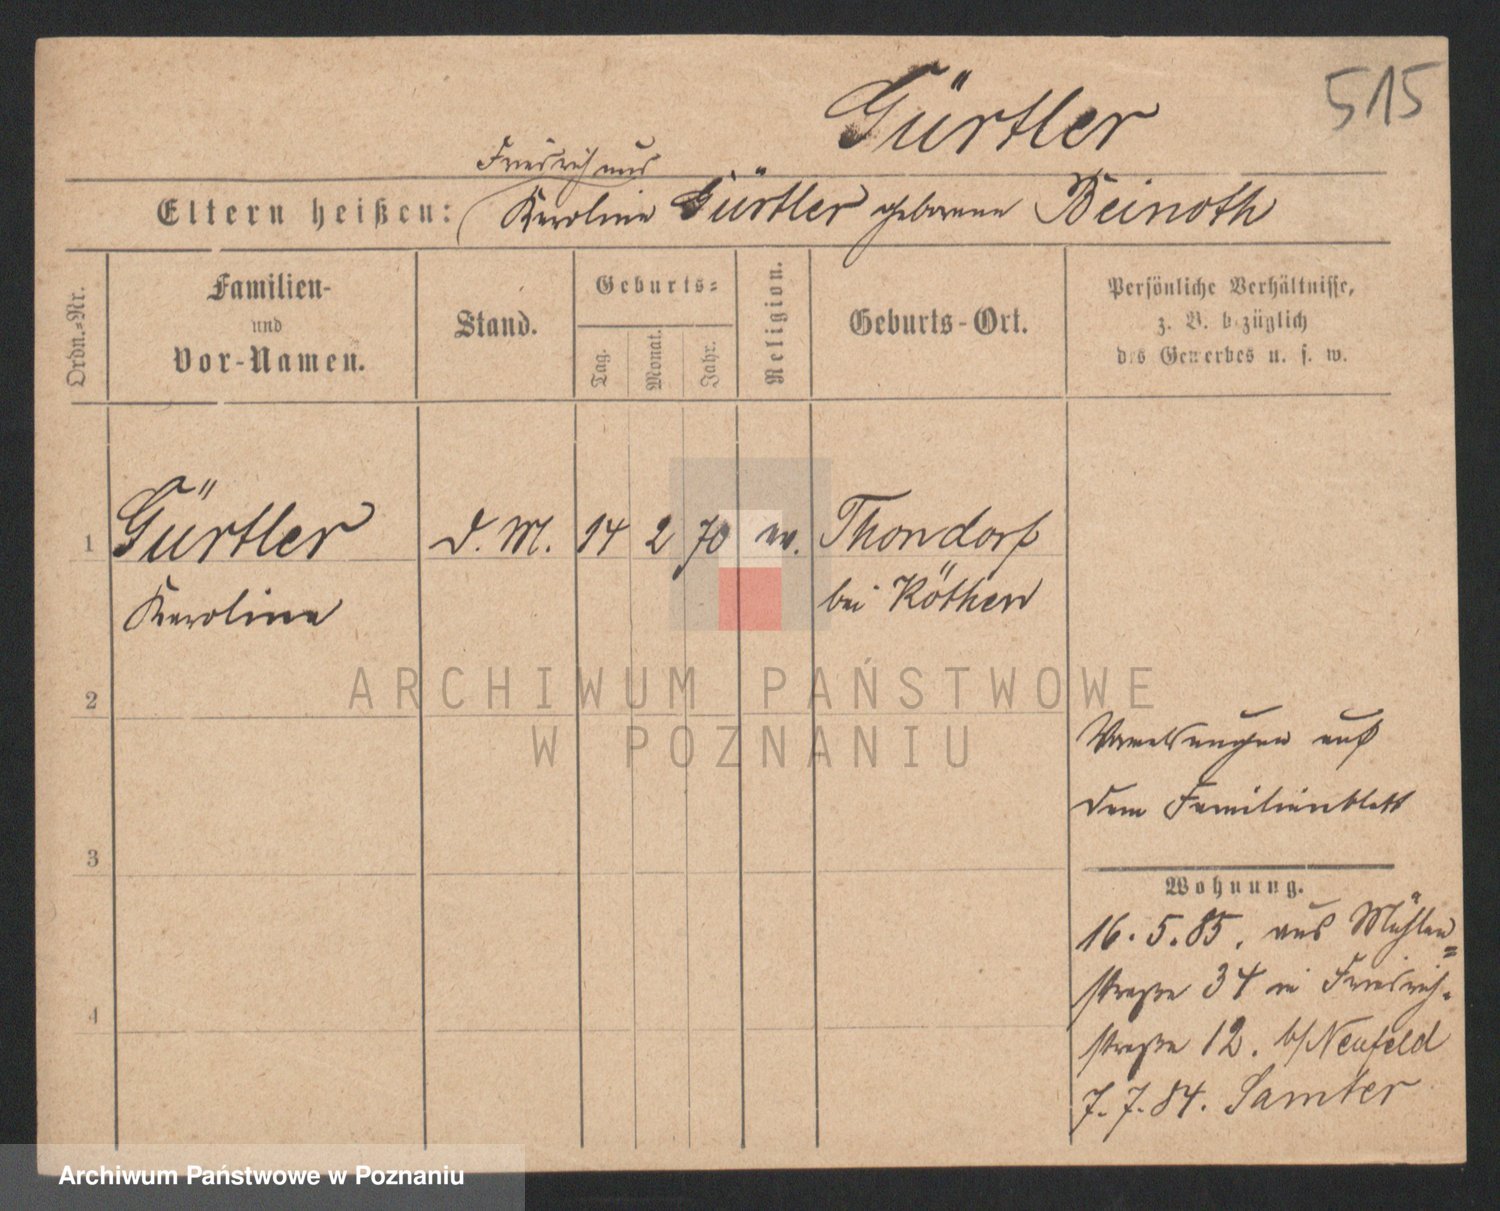 515
Gürtler
Friedrich und
Eltern heißen: Karoline Gürtler geborene Beinoth
Ordn.=Nr.
Familien-
und
Vor-Namen.
Stand.
Geburts=
Tag.
Monat.
Jahr.
Religion.
Geburts-Ort.
Persönliche Verhältnisse,
z. B. bezüglich
des Gewerbes u. s. w.
1 Gürtler d. M. 14 2 70 ev. Thondorf
Karoline bei Köthen
2
ARCHIWUM PAŃSTWOWE
W POZNANIU
auf
dem Familienblatt
3
Wohnung.
16.5.85. aus Mühlen=
straße 34 in Friedrich-
straße 12. b/Neufeld
4
7.7.84. Samter
Archiwum Państwowe w Poznaniu